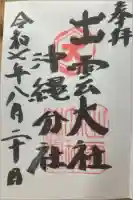 奉拝
出雲大社
沖縄分社
令和 年八月二十日